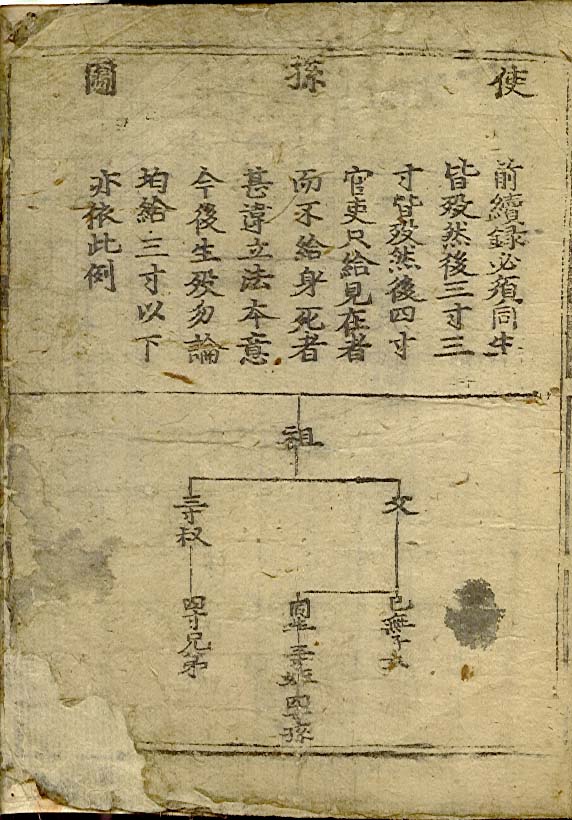 使孫圖
前續錄必須同生
皆歿然後三寸三
寸皆歿然後四寸
官吏只給見在者
而不給身死者
甚違立法本意
今後生歿勿論
均給三寸以下
亦依此例
祖
父
三寸叔
己無子女
同生三寸姪四寸孫
四寸兄弟